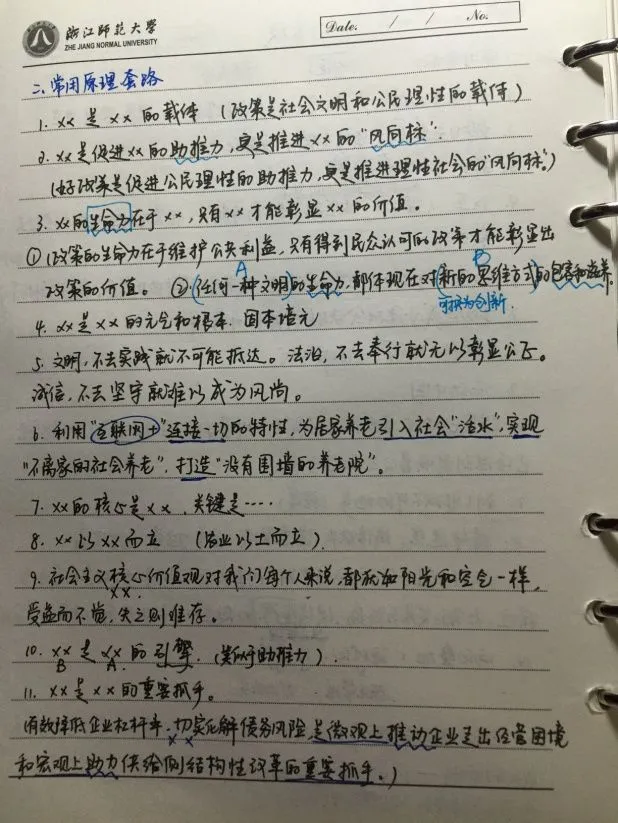 浙江师范大学
ZHE JIANG NORMAL UNIVERSITY
Date. / / No.
二、常用原理套路
1. xx 是 xx 的载体 (政策是社会文明和公民理性的载体)
2. xx是促进xx的助推力,更是推进xx的"风向标".
(好政策是促进公民理性的助推力,更是推进理性社会的"风向标")
3. xx的生命力在于xx,只有xx才能彰显xx的价值。
①(政策的生命力在于维护公共利益,只有得到民众认可的政策才能彰显出
A B
政策的价值。 ②(任何一种文明)的生命力,都体现在对(新的思维方式)的包容和滋养.
可换为创新.
4. xx是xx的元气和根本. 固本培元
5. 文明,不去实践就不可能抵达。法治,不去奉行就无以彰显公正。
诚信,不去坚守就难以成为风尚。
6. 利用"互联网+"连接一切的特性,为居家养老引入社会"活水",实现
"不离家的社会养老",打造"没有围墙的养老院"。
7. xx的核心是xx,关键是……
8. xx以xx而立 (农业以土而立).
9. 社会主义核心价值观对我们每个人来说,都犹如阳光和空气一样,
xx.
受益而不觉,失之则难存。
10. xx是xx的引擎.(类似于助推力).
B A
11. xx是xx的重要抓手。
(有效降低企业杠杆率,切实化解债务风险,是微观上推动企业走出经营困境
xx
和宏观上助力供给侧结构性改革的重要抓手。)